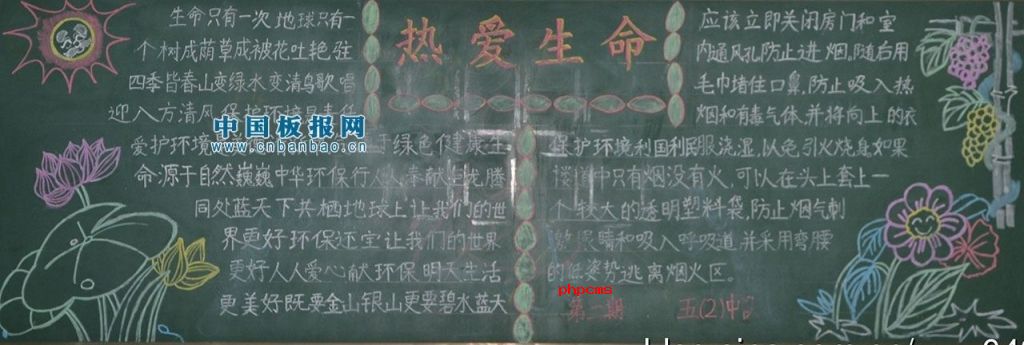 热爱生命
生命只有一次 地球只有一
个树成荫草成被花吐艳驻
四季皆春山变绿水变清鸟歌唱
迎入方清风保护环境
爱护环境 于绿色健康生
命源于自然巍巍中华环保行人人奉献
同处蓝天下共栖地球上让我们的世
界更好环保还宝让我们的世界
更好人人爱心献环保明天生活
更美好既要金山银山更要碧水蓝天
应该立即关闭房门和室
内通风孔防止进烟。随后用
毛巾堵住口鼻,防止吸入热
烟和有毒气体,并将向上的衣
保护环境利国利民服浇湿,以免引火烧身如果
楼道中只有烟没有火,可以在头上套上一
个较大的透明塑料袋,防止烟气刺
激眼睛和吸入呼吸道并采用弯腰
的低姿势逃离烟火区。
第二期 五(2)中
中国板报网
www.cnbanbao.cn
phpcms